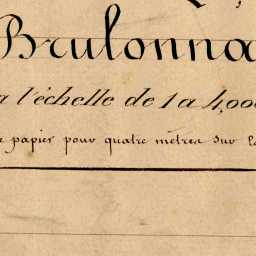 Brulonna
a l'échelle de 1 a 4,000
papier pour quatre mètres sur